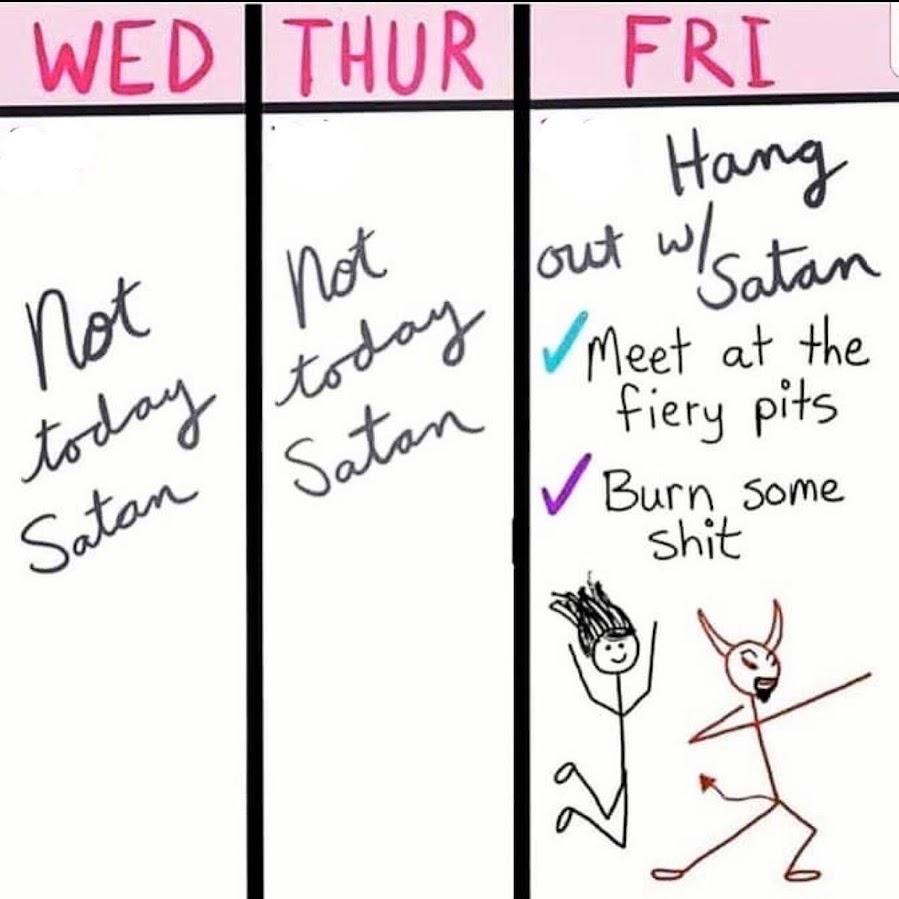 WED
Not
today
Satan
THUR
Not
today
Satan
FRI
Hang
out w/
Satan
Meet at the
fiery pits
Burn some
shit